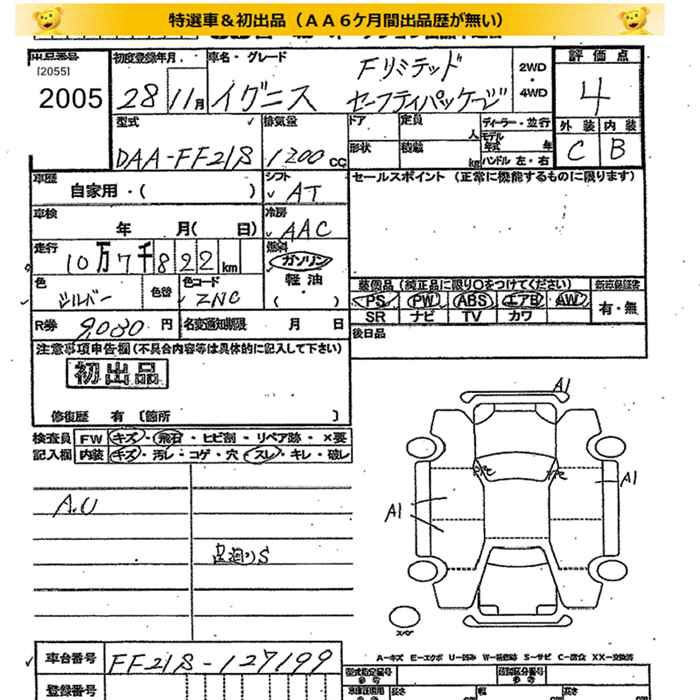 特選車＆初出品（ＡＡ６ケ月間出品歴が無い）
[2055]
2005
初度登録年月
28 11月
車名・グレード
イグニス Fリミテッド
セーフティパッケージ
2WD
・
4WD
評価点
4
外装 内装
C B
型式
DAA-FF21S
排気量
1200 CC
ドア 定員 人
形状 積載 kg
ディーラー・並行
モデル年式 年
ハンドル 左・右
車歴
自家用・( )
シフト
AT
セールスポイント（正常に機能するものに限ります）
車検
年 月( 日)
冷房
AAC
走行
10万7千822km
燃料
ガソリン
軽油
( )
色
シルバー
色替
色コード
ZNC
装備品（純正品に限り○をつけてください）
PS PW ABS エアB AW
SR ナビ TV カワ
有・無
R券 9,030円
名変通知期限 月 日
後日品
注意事項申告欄(不具合内容等は具体的に記入して下さい)
初出品
修復歴 有 [箇所 ]
検査員
記入欄
FW キズ・飛石・ヒビ割・リペア跡・×要
内装 キズ・汚レ・コゲ・穴・スレ・キレ・破レ
A.U
足廻りS
A1
A1
A1
スペア
車台番号 FF21S-127199
A-キズ E-エクボ U-凹み W-補修跡 S-サビ C-腐食 XX-交換済
登録番号
型式指定番号
類別区分番号
長さ
幅
高さ